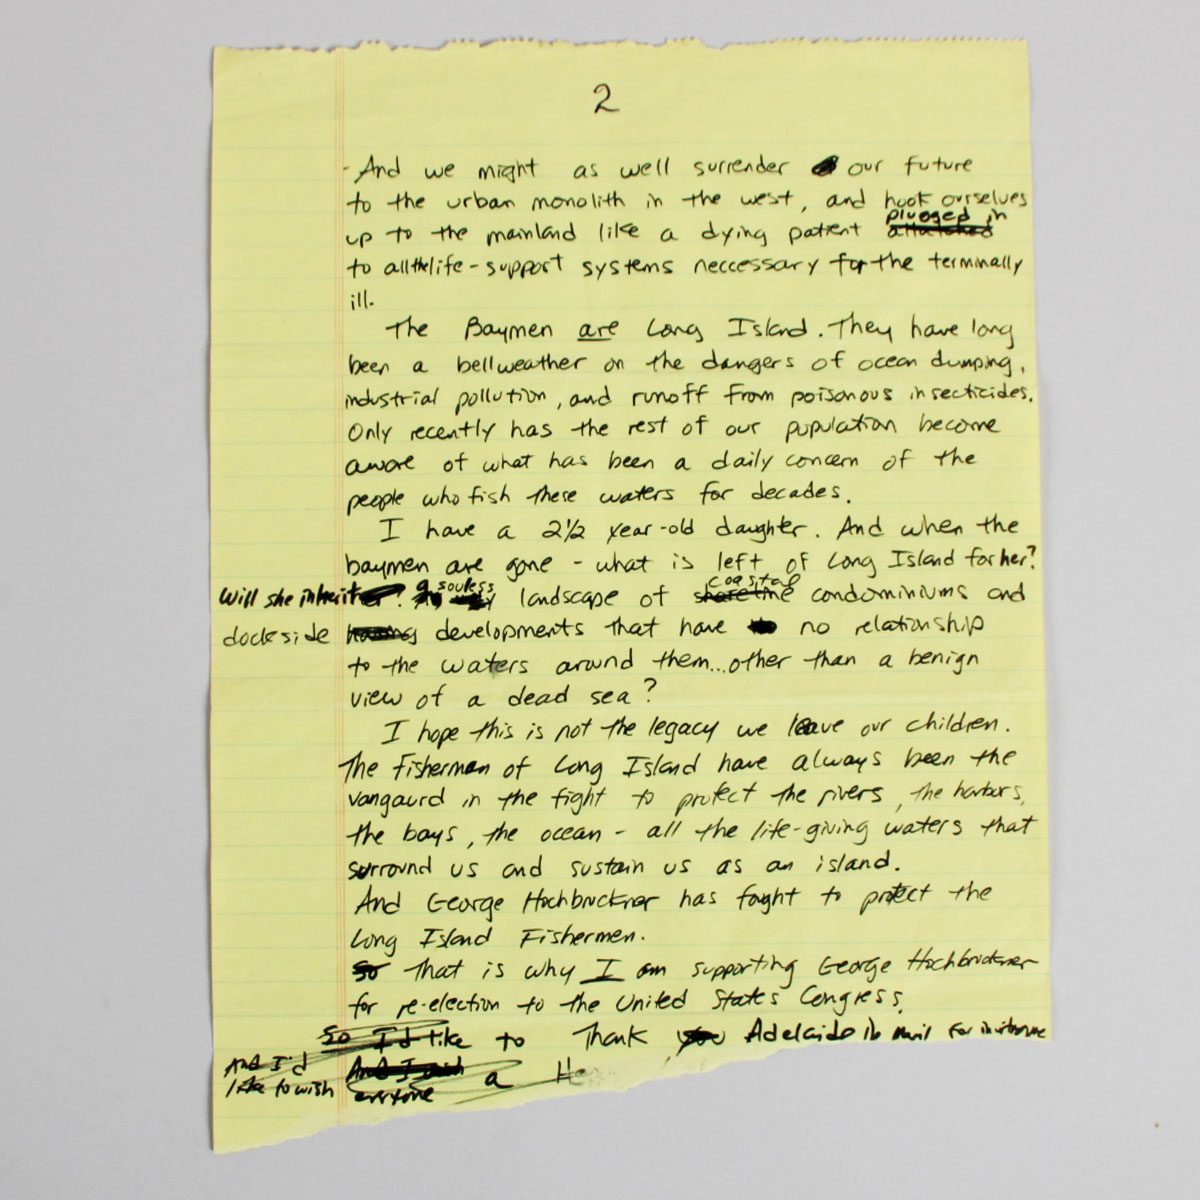 2
- And we might as well surrender our future
to the urban monolith in the west, and hook ourselves
up to the mainland like a dying patient plugged in
to all the life-support systems neccessary for the terminally
ill.
The Baymen are Long Island. They have long
been a bellweather on the dangers of ocean dumping,
industrial pollution, and runoff from poisonous insecticides.
Only recently has the rest of our population become
aware of what has been a daily concern of the
people who fish these waters for decades.
I have a 2 1/2 year-old daughter. And when the
baymen are gone - what is left of Long Island for her?
Will she inherit a souless landscape of coastal condominiums and
dockside developments that have no relationship
to the waters around them...other than a benign
view of a dead sea?
I hope this is not the legacy we leave our children.
The fishermen of Long Island have always been the
vangaurd in the fight to protect the rivers, the harbors,
the bays, the ocean - all the life-giving waters that
surround us and sustain us as an island.
And George Hochbruckner has fought to protect the
Long Island Fishermen.
So That is why I am supporting George Hochbruckner
for re-election to the United States Congress.
So I'd like to Thank you Adelaide
And I'd
like to wish everyone a